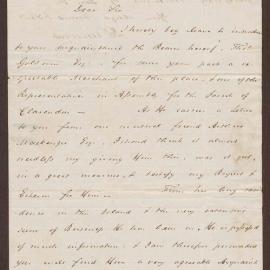 Dear Sir
I hereby beg leave to introduce
to your acquaintance the Bearer hereof, Thos
Esq. for some years past a re-
spectable Merchant of this place, & one of the
Representatives in Assembly for the Parish of
Clarendon —
As He carries a Letter
to you from our mutual friend
Mackenzie Esq. I should think it almost
needless my giving Him this, was it not,
in a great measure, to testify my Respect &
Esteem for Him — From his long resi-
dence in the Island & the very extensive
scene of Business He has been in, He is possessed
of much information, & I am therefore persuaded
you will find Him a very agreeable Acquaint